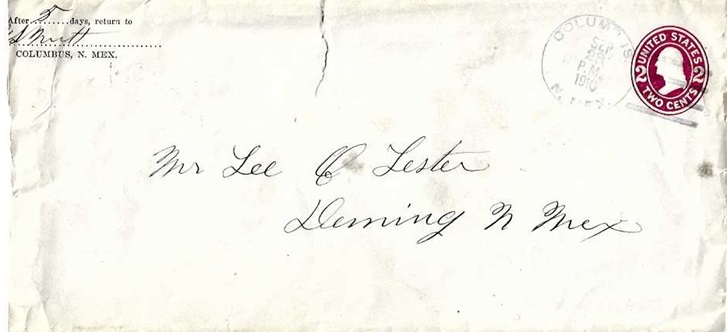 After 5 days, return to
COLUMBUS, N. MEX.
COLUMBUS
SEP
P.M.
1910
N. MEX.
UNITED STATES
2 2
TWO CENTS
Mr Lee C Lester
Deming N Mex